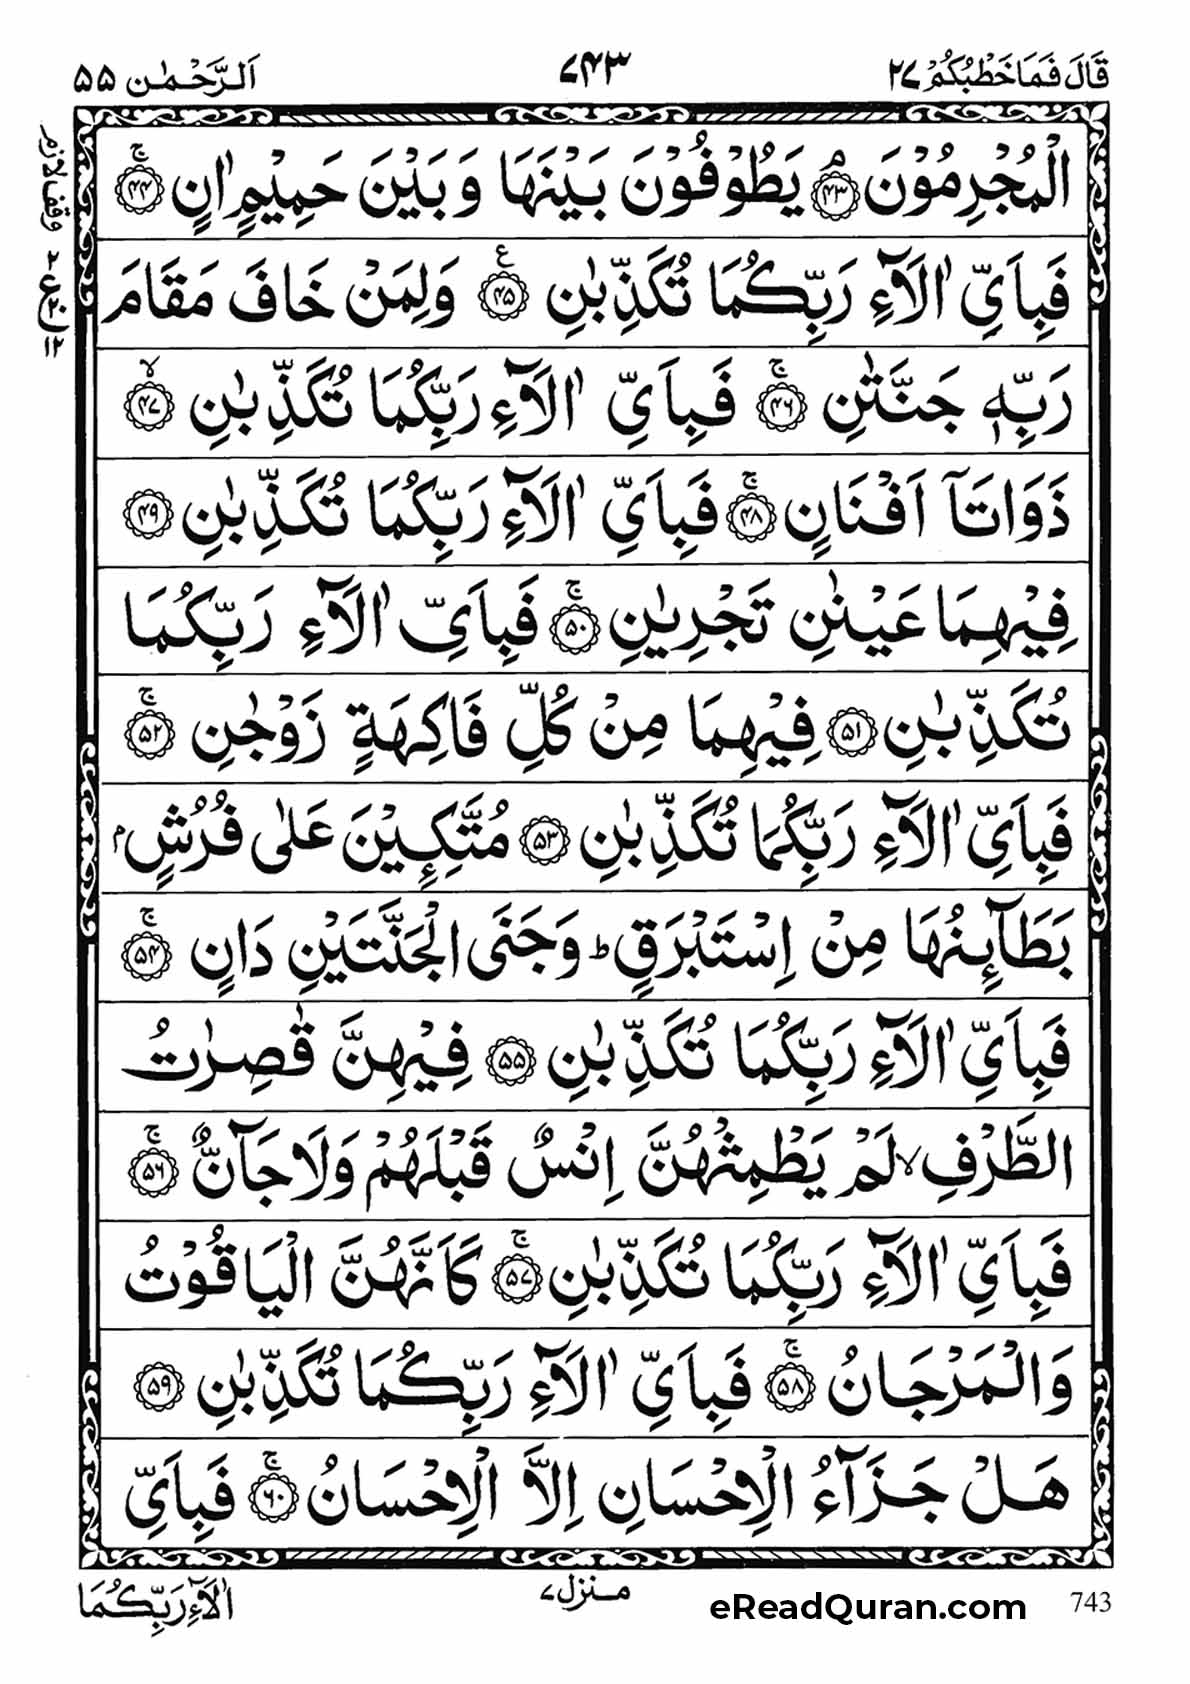 قَالَ فَمَا خَطْبُكُمْ ٢٧
٧٤٣
اَلرَّحْمٰن ٥٥
الْمُجْرِمُوْنَ ۘ﴿۴۳﴾ يَطُوْفُوْنَ بَيْنَهَا وَبَيْنَ حَمِيْمٍ اٰنٍ ۚ﴿۴۴﴾
فَبِاَيِّ اٰلَآءِ رَبِّكُمَا تُكَذِّبٰنِ ﴿۴۵﴾ ع وَلِمَنْ خَافَ مَقَامَ
رَبِّهٖ جَنَّتٰنِ ۚ﴿۴۶﴾ فَبِاَيِّ اٰلَآءِ رَبِّكُمَا تُكَذِّبٰنِ ۙ﴿۴۷﴾
ذَوَاتَاۤ اَفْنَانٍ ۚ﴿۴۸﴾ فَبِاَيِّ اٰلَآءِ رَبِّكُمَا تُكَذِّبٰنِ ﴿۴۹﴾
فِيْهِمَا عَيْنٰنِ تَجْرِيٰنِ ۚ﴿۵۰﴾ فَبِاَيِّ اٰلَآءِ رَبِّكُمَا
تُكَذِّبٰنِ ﴿۵۱﴾ فِيْهِمَا مِنْ كُلِّ فَاكِهَةٍ زَوْجٰنِ ۚ﴿۵۲﴾
فَبِاَيِّ اٰلَآءِ رَبِّكُمَا تُكَذِّبٰنِ ﴿۵۳﴾ مُتَّكِـِٕيْنَ عَلٰى فُرُشٍۭ
بَطَآىِٕنُهَا مِنْ اِسْتَبْرَقٍ ؕ وَجَنَى الْجَنَّتَيْنِ دَانٍ ۚ﴿۵۴﴾
فَبِاَيِّ اٰلَآءِ رَبِّكُمَا تُكَذِّبٰنِ ﴿۵۵﴾ فِيْهِنَّ قٰصِرٰتُ
الطَّرْفِ ۙ لَمْ يَطْمِثْهُنَّ اِنْسٌ قَبْلَهُمْ وَلَا جَآنٌّ ۚ﴿۵۶﴾
فَبِاَيِّ اٰلَآءِ رَبِّكُمَا تُكَذِّبٰنِ ۚ﴿۵۷﴾ كَاَنَّهُنَّ الْيَاقُوْتُ
وَالْمَرْجَانُ ۚ﴿۵۸﴾ فَبِاَيِّ اٰلَآءِ رَبِّكُمَا تُكَذِّبٰنِ ﴿۵۹﴾
هَلْ جَزَآءُ الْاِحْسَانِ اِلَّا الْاِحْسَانُ ۚ﴿۶۰﴾ فَبِاَيِّ
وقف لازم
ع
١٢
743
eReadQuran.com
منزل ٧
اٰلَآءِ رَبِّكُمَا